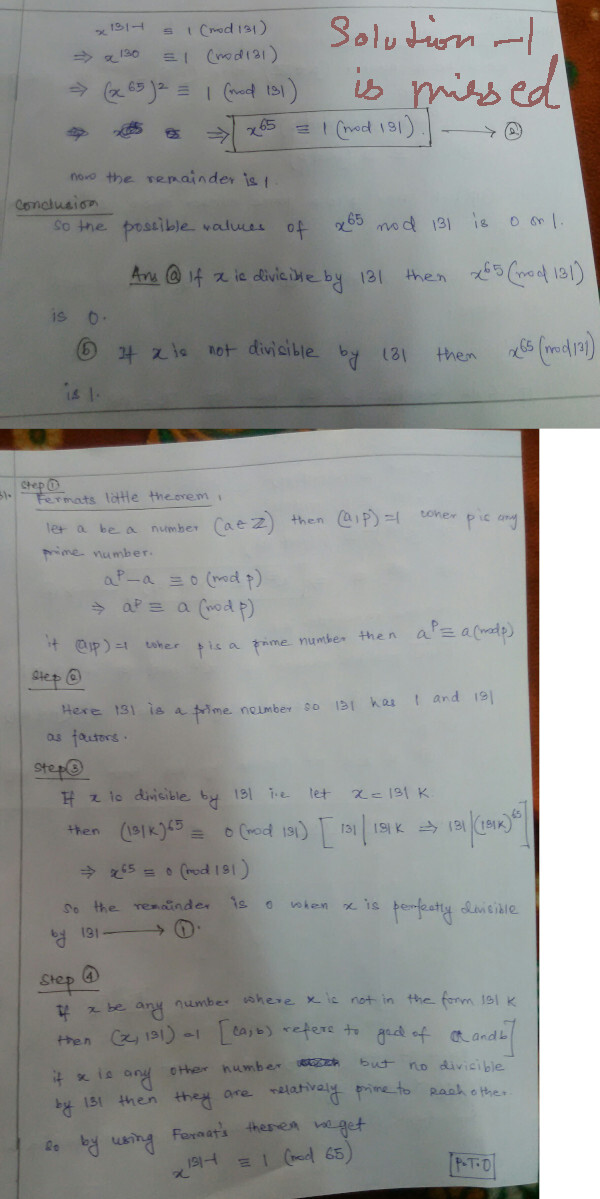 x^131-1 ≡ 1 (mod 131)
⇒ x^130 ≡ 1 (mod 131)
⇒ (x^65)^2 ≡ 1 (mod 131)
⇒ x^65 ≡ 1 (mod 131). ⟶ ②
Solution -1
is missed
now the remainder is 1
Conclusion
So the possible values of x^65 mod 131 is 0 or 1.
Ans ⓐ If x is divisible by 131 then x^65 (mod 131)
is 0.
ⓑ If x is not divisible by 131 then x^65 (mod 131)
is 1.
Step ①
Fermats little theorem,
let a be a number (a ∈ Z) then (a,p)=1 wher p is any
prime number.
a^p - a ≡ 0 (mod p)
⇒ a^p ≡ a (mod p)
if (a,p)=1 wher p is a prime number then a^p ≡ a (mod p)
Step ②
Here 131 is a prime number so 131 has 1 and 131
as factors.
Step ③
If x is divisible by 131 i.e let x = 131 K.
then (131K)^65 ≡ 0 (mod 131) [131 | 131K ⇒ 131 | (131K)^65]
⇒ x^65 ≡ 0 (mod 131)
So the remainder is 0 when x is perfectly divisible
by 131 ⟶ ①.
Step ④
If x be any number where x is not in the form 131 K
then (x, 131) = 1 [(a,b) refers to gcd of a and b]
if x is any other number but no divisible
by 131 then they are relatively prime to each other
so by using Fermat's theorem we get
x^131-1 ≡ 1 (mod 65)
P.T.O